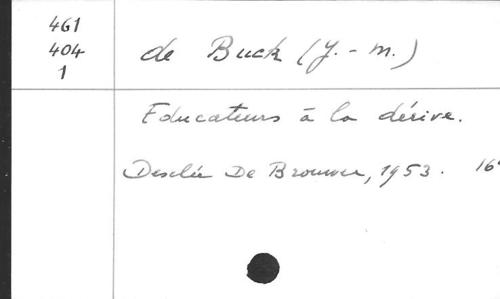 461
404
1
de Buck (J.-M.)
Educateurs à la dérive.
Desclée De Brouwer, 1953. 16°